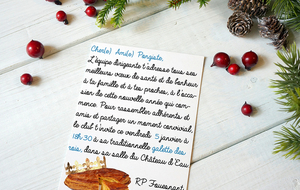 Cher(e) Ami(e) Pongiste,
L'équipe dirigeante t'adresse tous ses
meilleurs vœux de santé et de bonheur
à ta famille et à tes proches, à l'occa-
sion de cette nouvelle année qui com-
mence. Pour rassembler adhérents et
amis et partager un moment convivial,
le club t'invite ce vendredi 5 janvier à
18h30 à sa traditionnelle galette des
rois, dans sa salle du Château d'Eau
RP Fouesnant